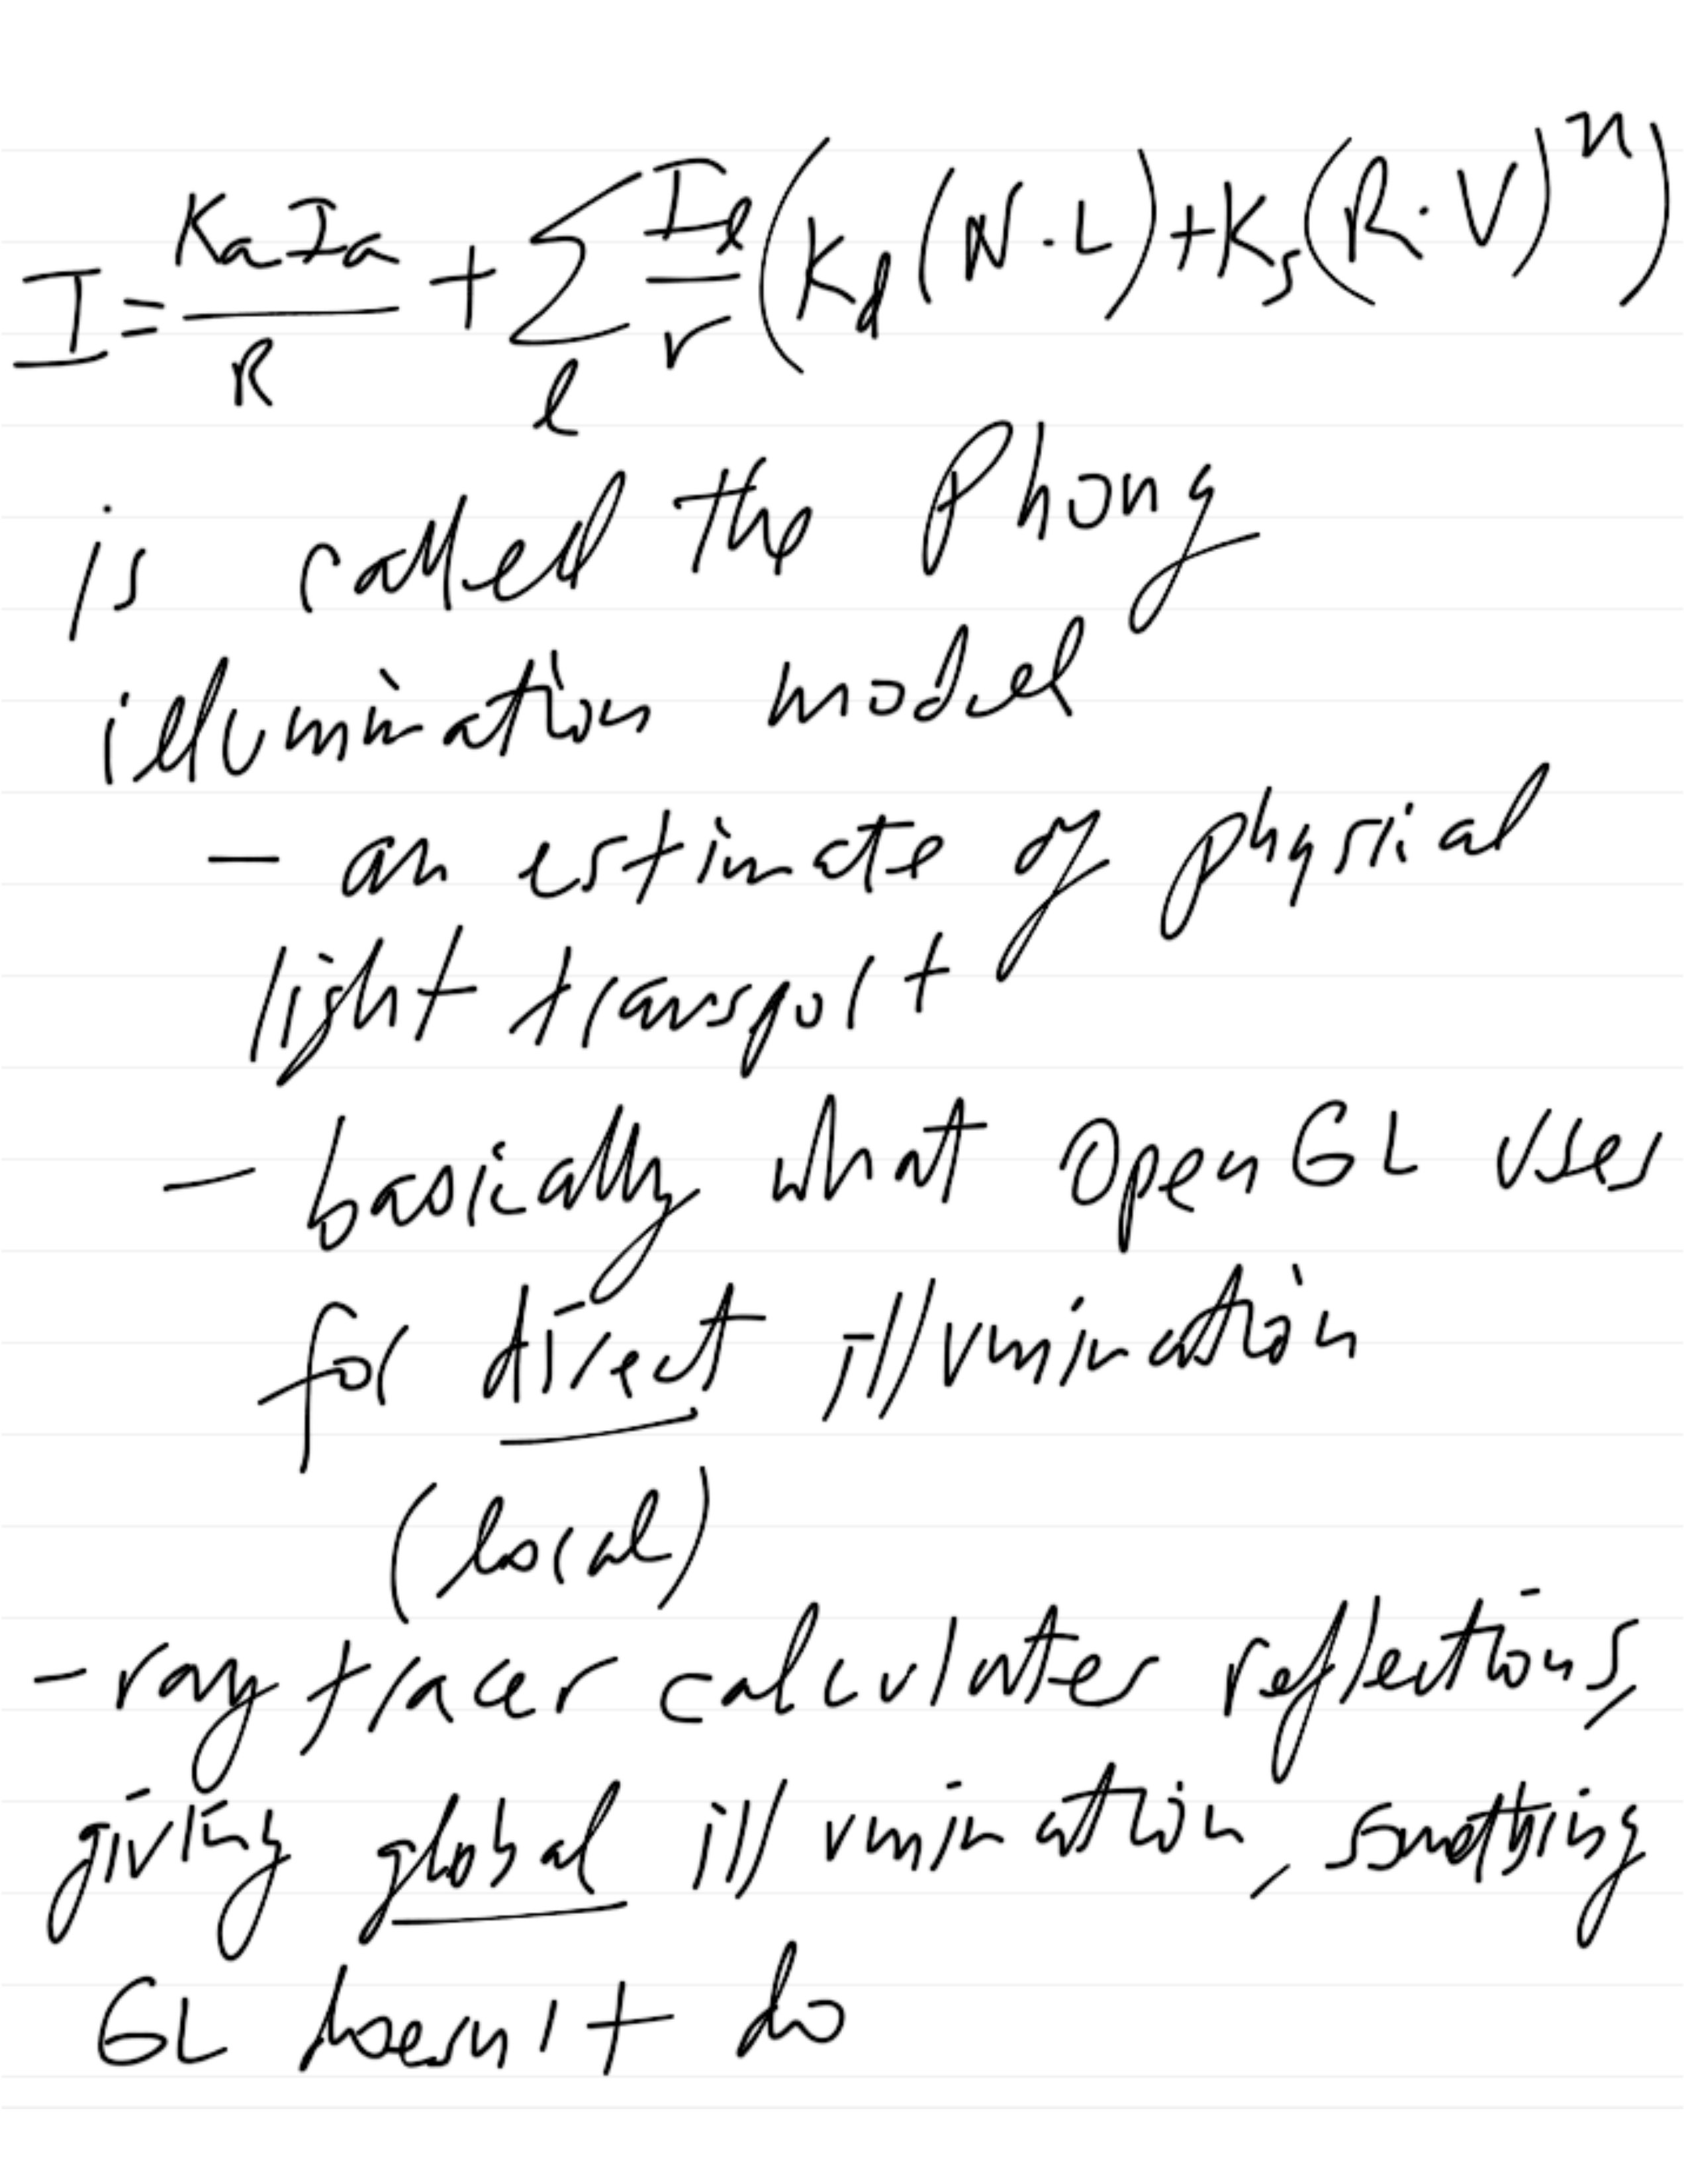 I = KaIa/R + Σl Il/r (Kd(N·L) + Ks(R·V)^n)
is called the Phong
illumination model
— an estimate of physical
light transport
— basically what OpenGL uses
for direct illumination
(local)
- ray tracer calculates reflections,
giving global illumination, something
GL doesn't do